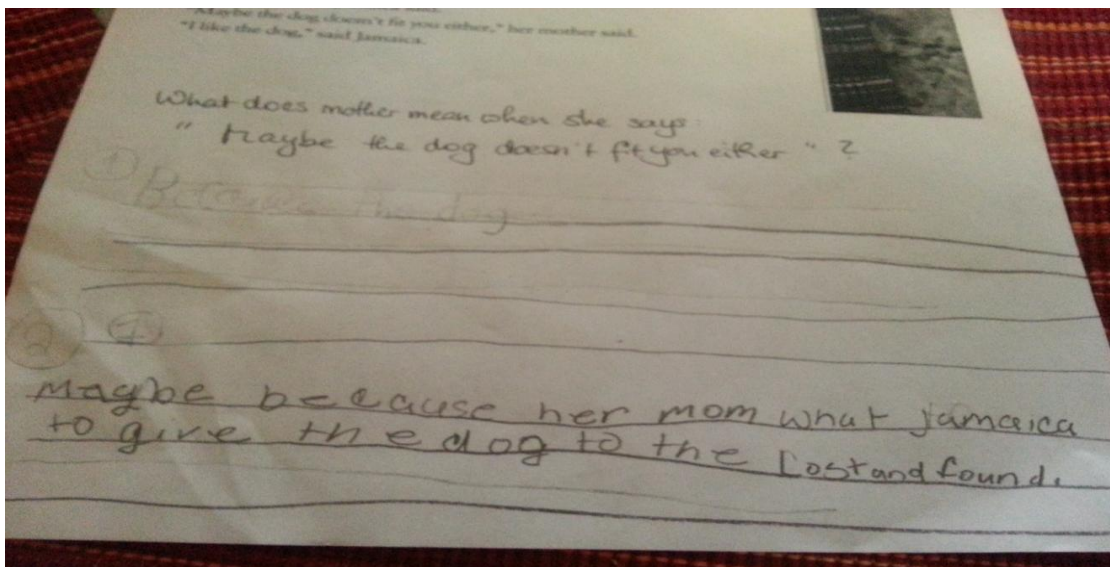 "Maybe the dog doesn't fit you either," her mother said.
"I like the dog," said Jamaica.
What does mother mean when she says:
" Maybe the dog doesn't fit you either " ?
1
Because the dog
2 1
Maybe because her mom what Jamaica
to give the dog to the Lost and found.